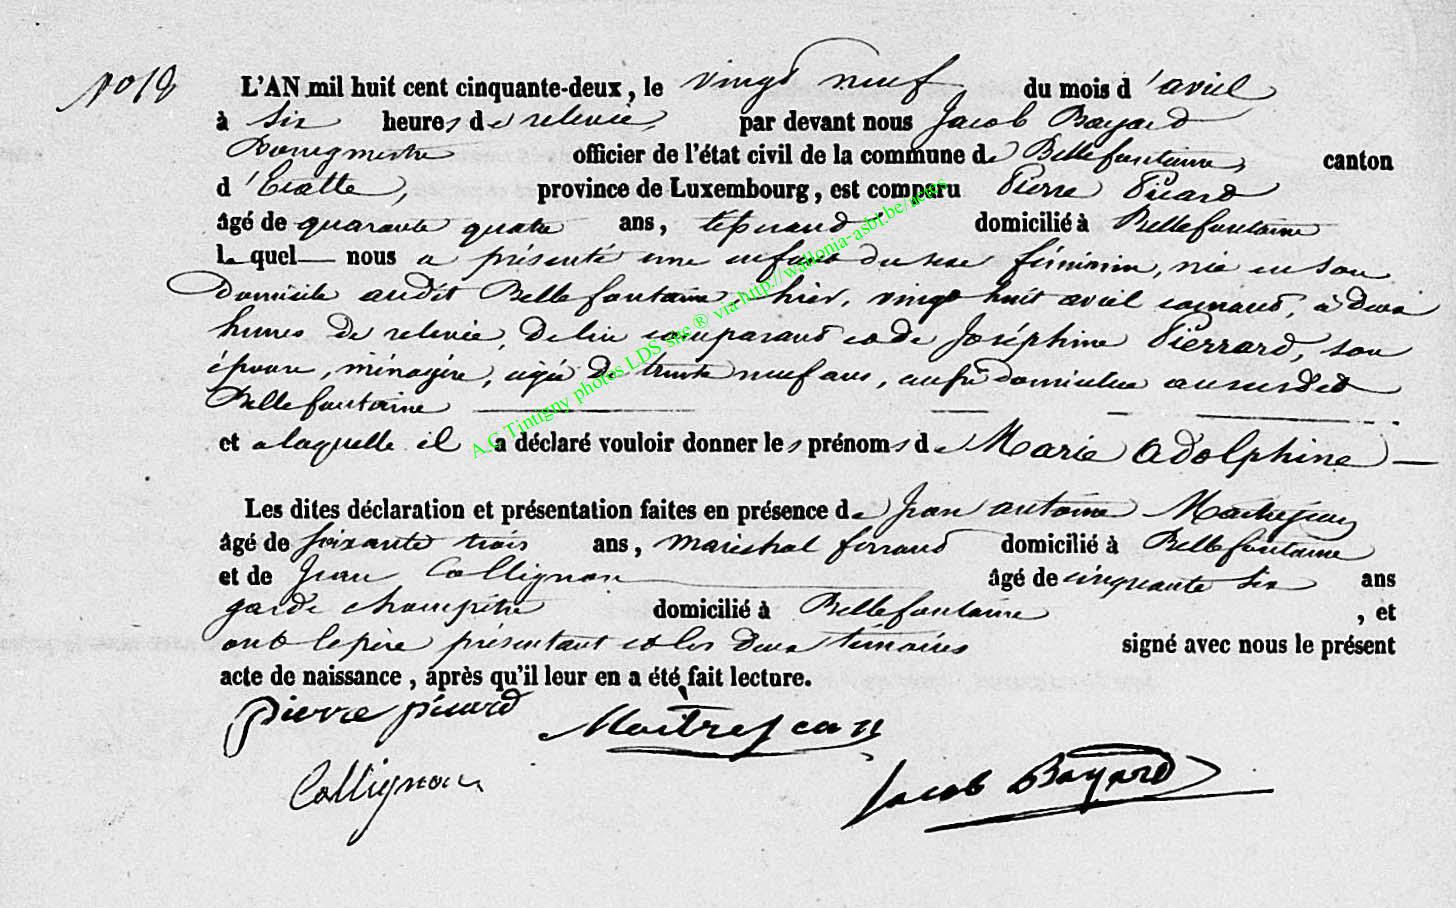 No 18
L'AN mil huit cent cinquante-deux, le vingt neuf du mois d'avril
à six heures de relevée, par devant nous Jacob Bayard
Bourgmestre officier de l'état civil de la commune de Bellefontaine, canton
d'Etalle, province de Luxembourg, est comparu Pierre Picard
âgé de quarante quatre ans, domicilié à Bellefontaine
lequel nous a présenté une enfant du sexe féminin, née en son
domicile audit Bellefontaine, hier, vingt huit avril courant, à deux
heures de relevée, de lui comparant et de Joséphine Pierrard, son
épouse, ménagère, agée de trente neuf ans, aussi domiciliée au susdit
Bellefontaine
et a laquelle il a déclaré vouloir donner les prénoms de Marie Adolphine
Les dites déclaration et présentation faites en présence de Jean antoine Maitrejean
âgé de soixante trois ans, maréchal ferrand domicilié à Bellefontaine
et de Jean Collignon âgé de cinquante six ans
garde champêtre domicilié à Bellefontaine, et
ont le père présentant et les deux témoins signé avec nous le présent
acte de naissance, après qu'il leur en a été fait lecture.
pierre picard Maitrejean
Collignon Jacob Bayard
A.C Tintigny photos LDS site ® via http://wallonia-asbl.be/actes